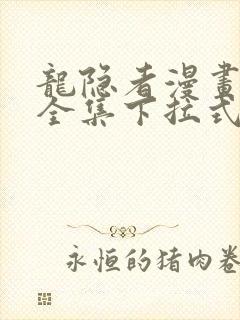 龍隐者漫畫
全集下拉式
永恒的猪肉卷